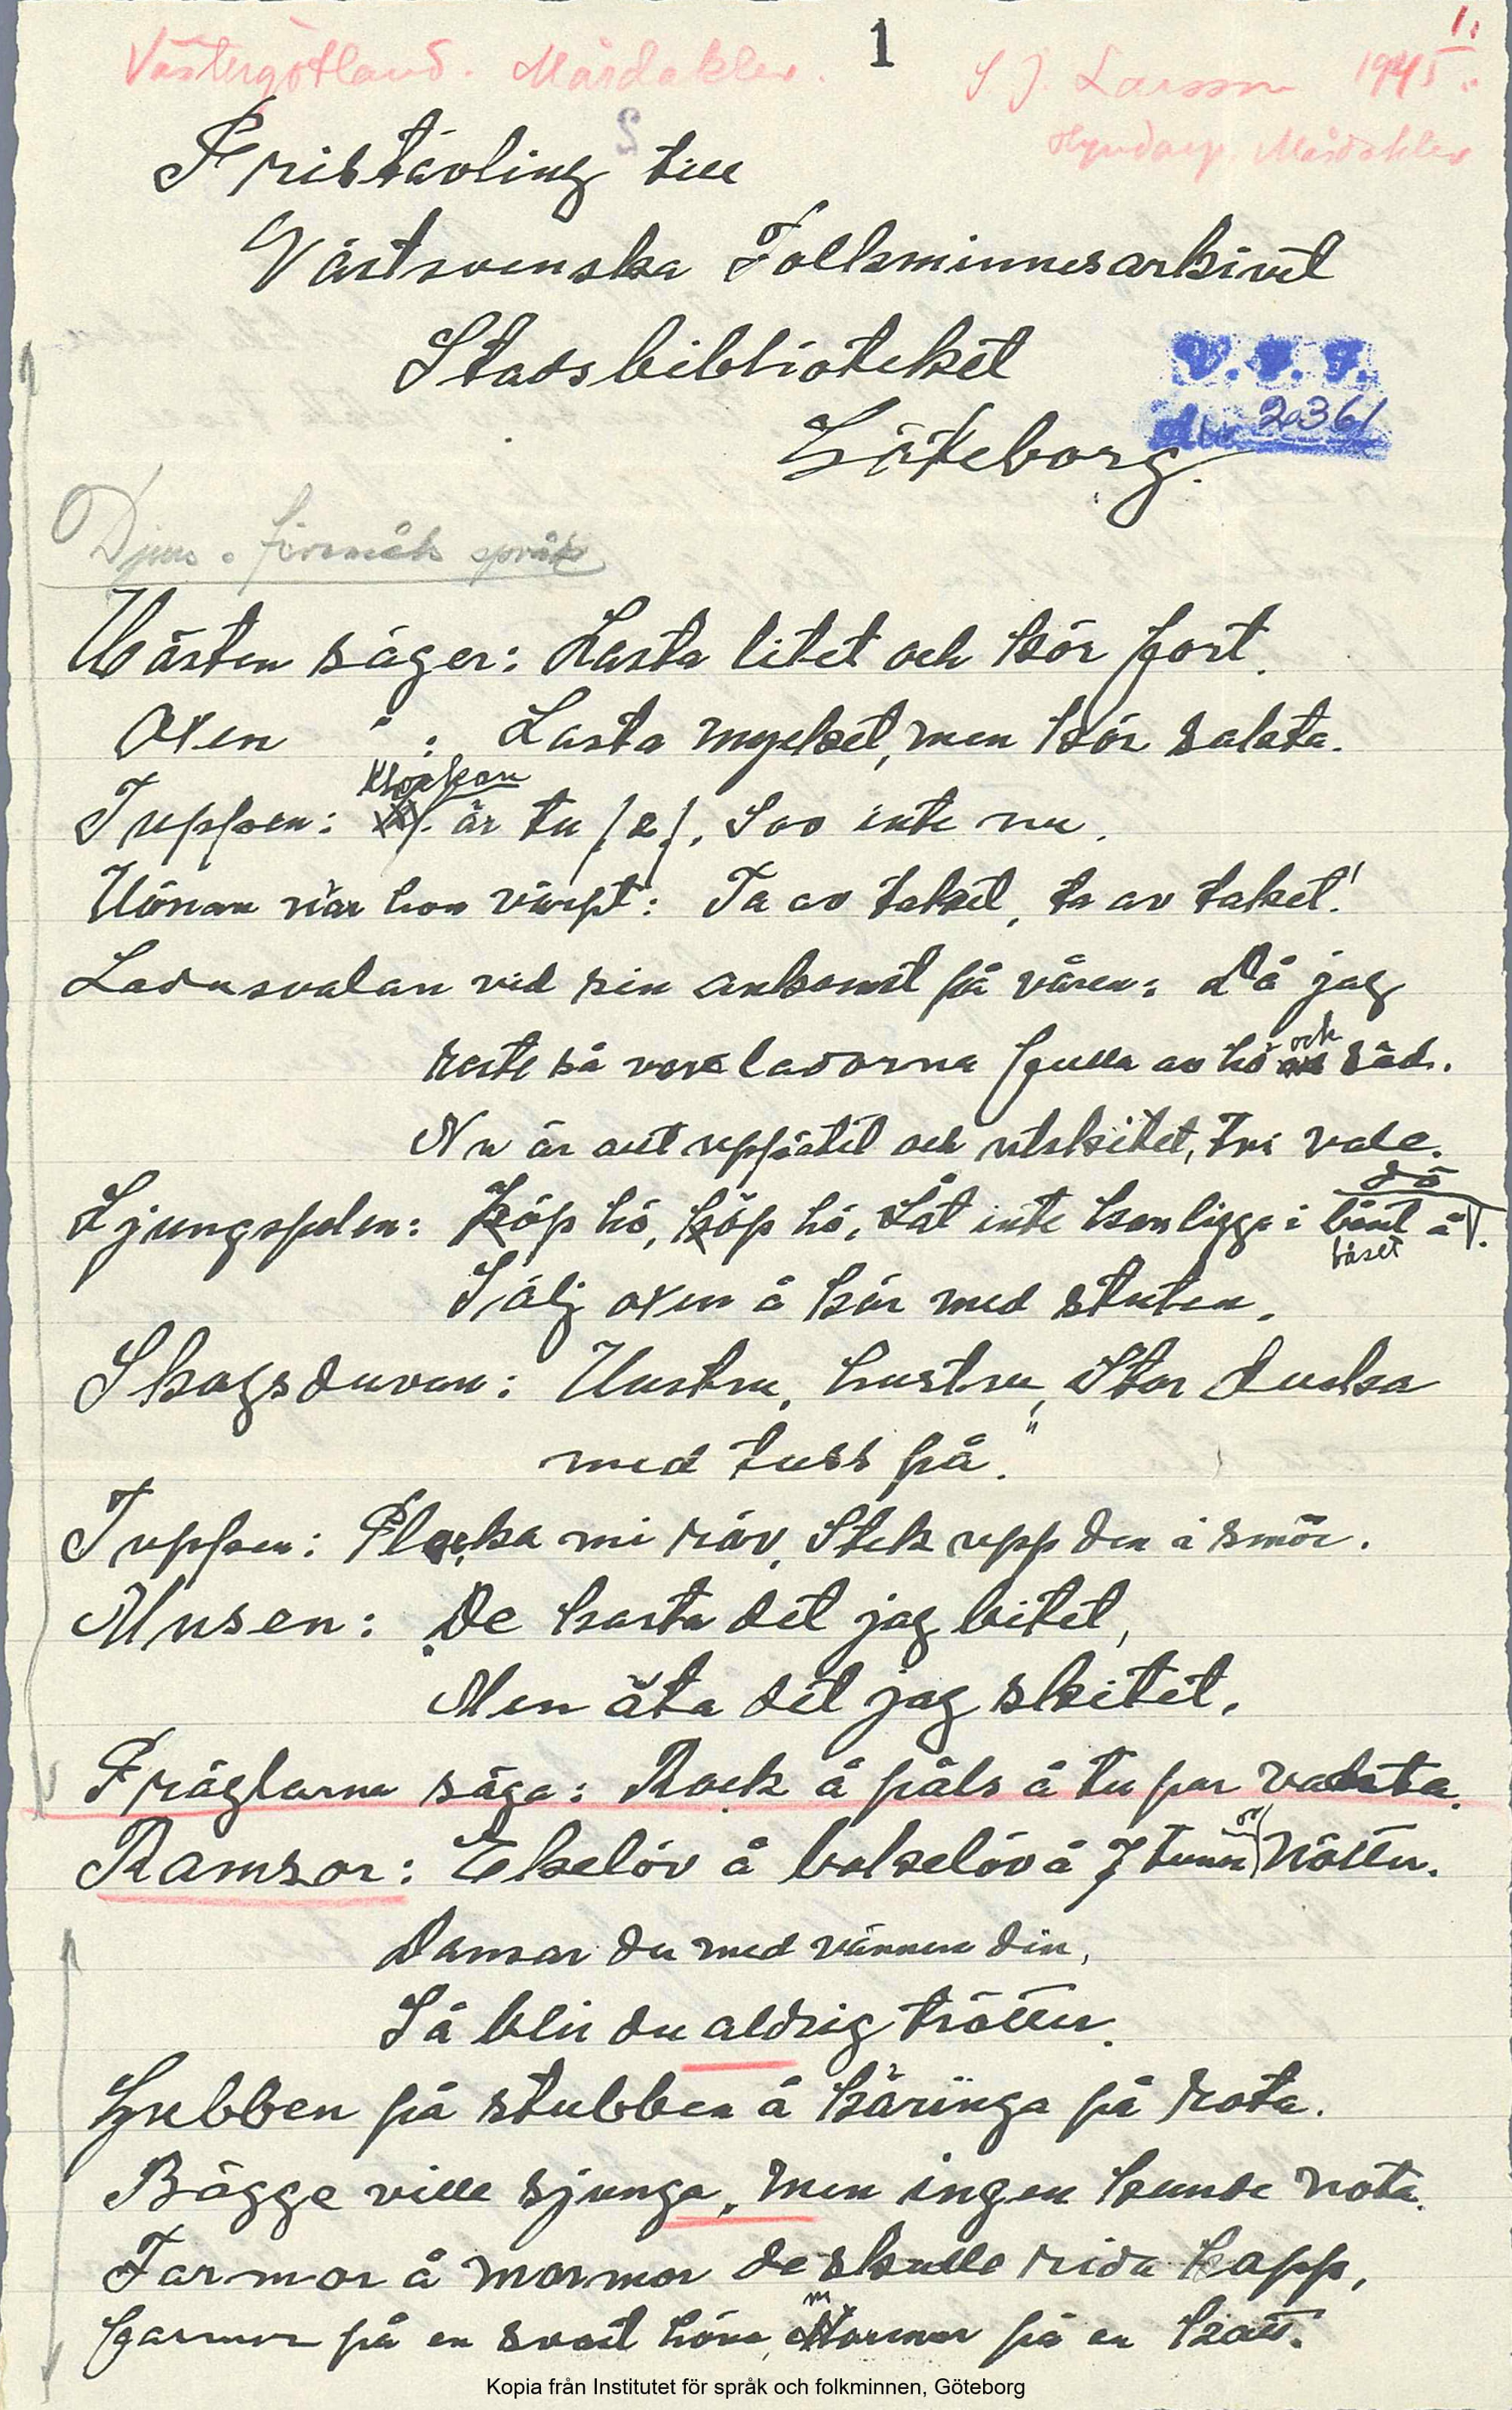 1
1.
Västergötland. Mårdaklev.
S J. Larsson 1945.
Mårdaklev
Pristävling till
Västsvenska Folkminnesarkivet
Stadsbiblioteket
Göteborg.
V.F.F.
2361
Djurs o. föremåls språk
Hästen säger: Lasta litet och kör fort.
Oxen " : Lasta mycket, men kör sakta.
Tuppen: Klockan är tu /2/. Sov inte nu.
Hönan när hon värpt: Ta av taket, ta av taket!
Ladusvalan vid sin ankomst på våren: Då jag
reste så vore ladorna fulla av hö och säd.
Nu är allt uppätet och utskitet, tvi vale.
Ljungspolen: Köp hö, köp hö, Låt inte kon ligga i båset å dö.
Sälj oxen å kör med stuten.
Skogsduvan: Hustru, hustru, Stor lucka
med tuss på."
Tuppen: Plocka mi räv, Stek upp den i smör.
Musen: De kasta det jag bitet,
Men äta det jag skitet.
Fräglarna säga: Rock å päls å tu par vaksta.
Ramsor: Ekelöv å bokelöv å 7 tunnor nötter.
Dansar du med vännen din,
Så blir du aldrig trötter.
Gubben på stubben å käringa på rota.
Bägge ville sjunga, men ingen kunde nota.
Farmor å mormor de skulle rida kapp,
farmor på en svart höna, mormor på en katt.
Kopia från Institutet för språk och folkminnen, Göteborg